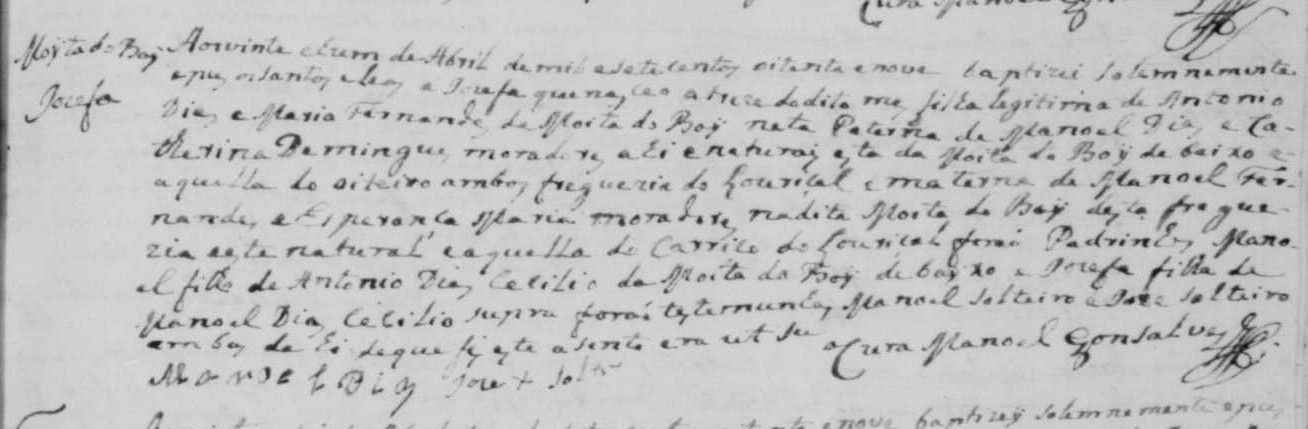 Cura Manoel Gonsalves
Moyta do Boy
Josefa
Aos vinte e hum de Abril de mil e sete centos oitenta e nove baptizei solemnemente
e pus os santos oleos a Josefa que nasceo a treze do dito mes filha legitima de Antonio
Dias e Maria Fernandes da Moita do Boy neta Paterna de Manoel Dias e Ca-
therina Domingues moradores ahi e naturais esta da Moita do Boy de baixo e
aquella do oiteiro ambos freguezia do Louriçal e materna de Manoel Fer-
nandes e Esperança Maria moradores na dita Moita do Boy desta fregue-
zia este natural e aquella do Carriço do Louriçal forão Padrinhos Mano-
el filho de Antonio Dias Cecilio da Moita do Boy de bayxo e Josefa filha de
Manoel Dias Cecilio supra forão testemunhas Manoel solteiro e Joze solteiro
ambos da hi de que fis este asento era ut su
o Cura Manoel Gonsalves
Manoel Diz Joze + solt.ro
e nove baptizey solemnemente e pus